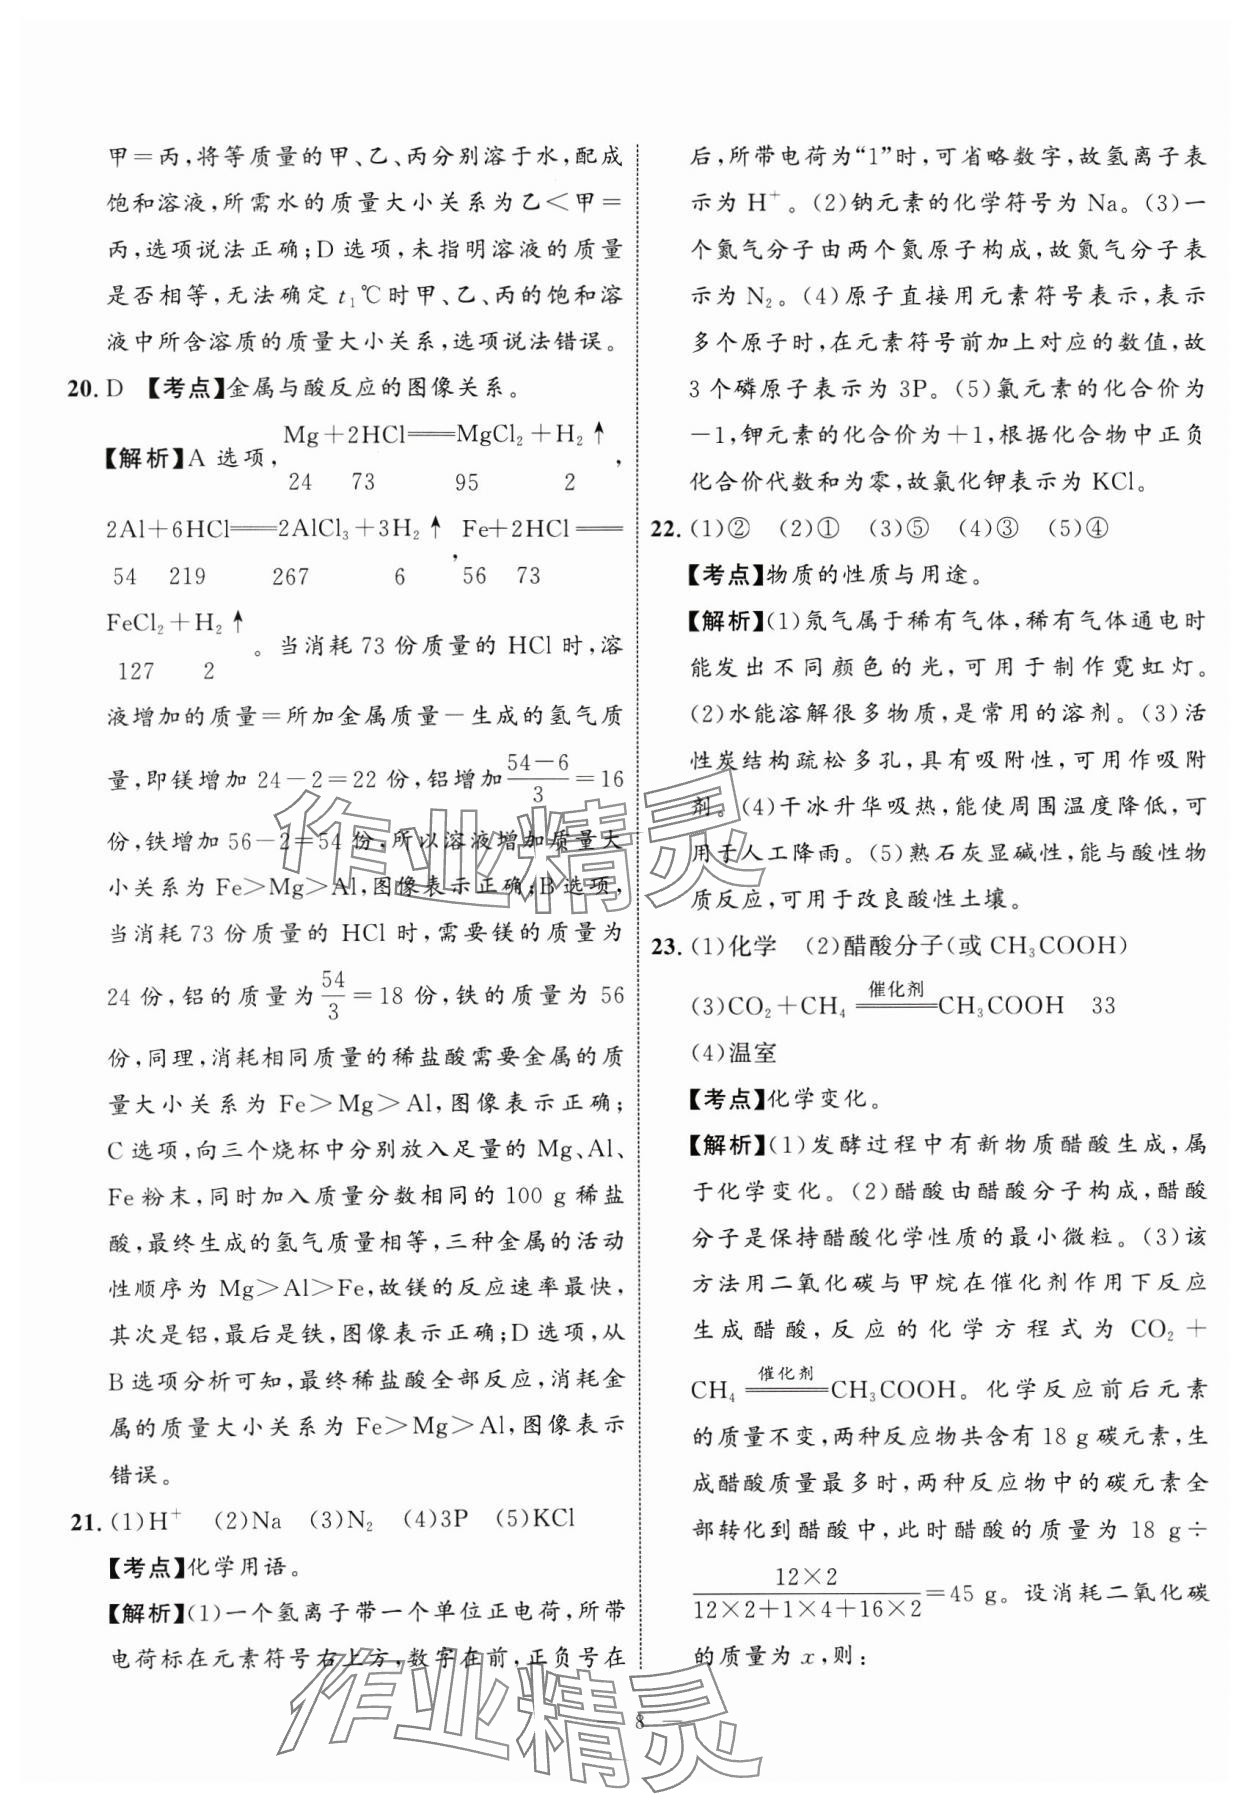 甲＝丙,将等质量的甲、乙、丙分别溶于水,配成
饱和溶液,所需水的质量大小关系为乙＜甲＝
丙,选项说法正确;D选项,未指明溶液的质量
是否相等,无法确定 t₁℃时甲、乙、丙的饱和溶
液中所含溶质的质量大小关系,选项说法错误。
20. D 【考点】金属与酸反应的图像关系。
【解析】A 选项, Mg＋2HCl══MgCl₂＋H₂↑,
24 73 95 2
2Al＋6HCl══2AlCl₃＋3H₂↑, Fe＋2HCl══
54 219 267 6 56 73
FeCl₂＋H₂↑。当消耗 73 份质量的 HCl 时,溶
127 2
液增加的质量＝所加金属质量－生成的氢气质
量,即镁增加 24－2＝22 份,铝增加 (54－6)/3 ＝16
份,铁增加 56－2＝54 份,所以溶液增加质量大
小关系为 Fe＞Mg＞Al,图像表示正确;B选项,
当消耗 73 份质量的 HCl 时,需要镁的质量为
24 份,铝的质量为 54/3 ＝18 份,铁的质量为 56
份,同理,消耗相同质量的稀盐酸需要金属的质
量大小关系为 Fe＞Mg＞Al,图像表示正确;
C 选项,向三个烧杯中分别放入足量的 Mg、Al、
Fe 粉末,同时加入质量分数相同的 100 g 稀盐
酸,最终生成的氢气质量相等,三种金属的活动
性顺序为 Mg＞Al＞Fe,故镁的反应速率最快,
其次是铝,最后是铁,图像表示正确;D选项,从
B 选项分析可知,最终稀盐酸全部反应,消耗金
属的质量大小关系为 Fe＞Mg＞Al,图像表示
错误。
21. (1)H⁺ (2)Na (3)N₂ (4)3P (5)KCl
【考点】化学用语。
【解析】(1)一个氢离子带一个单位正电荷,所带
电荷标在元素符号右上方,数字在前,正负号在
后,所带电荷为“1”时,可省略数字,故氢离子表
示为 H⁺。(2)钠元素的化学符号为 Na。(3)一
个氮气分子由两个氮原子构成,故氮气分子表
示为 N₂。(4)原子直接用元素符号表示,表示
多个原子时,在元素符号前加上对应的数值,故
3 个磷原子表示为 3P。(5)氯元素的化合价为
－1,钾元素的化合价为＋1,根据化合物中正负
化合价代数和为零,故氯化钾表示为 KCl。
22. (1)② (2)① (3)⑤ (4)③ (5)④
【考点】物质的性质与用途。
【解析】(1)氖气属于稀有气体,稀有气体通电时
能发出不同颜色的光,可用于制作霓虹灯。
(2)水能溶解很多物质,是常用的溶剂。(3)活
性炭结构疏松多孔,具有吸附性,可用作吸附
剂。(4)干冰升华吸热,能使周围温度降低,可
用于人工降雨。(5)熟石灰显碱性,能与酸性物
质反应,可用于改良酸性土壤。
23. (1)化学 (2)醋酸分子(或 CH₃COOH)
(3)CO₂＋CH₄ ═催化剂═ CH₃COOH 33
(4)温室
【考点】化学变化。
【解析】(1)发酵过程中有新物质醋酸生成,属
于化学变化。(2)醋酸由醋酸分子构成,醋酸
分子是保持醋酸化学性质的最小微粒。(3)该
方法用二氧化碳与甲烷在催化剂作用下反应
生成醋酸,反应的化学方程式为 CO₂＋
CH₄ ═催化剂═ CH₃COOH。化学反应前后元素
的质量不变,两种反应物共含有 18 g 碳元素,生
成醋酸质量最多时,两种反应物中的碳元素全
部转化到醋酸中,此时醋酸的质量为 18 g÷
(12×2)/(12×2＋1×4＋16×2) ＝45 g。设消耗二氧化碳
的质量为 x,则:
8
作业精灵
作业精灵